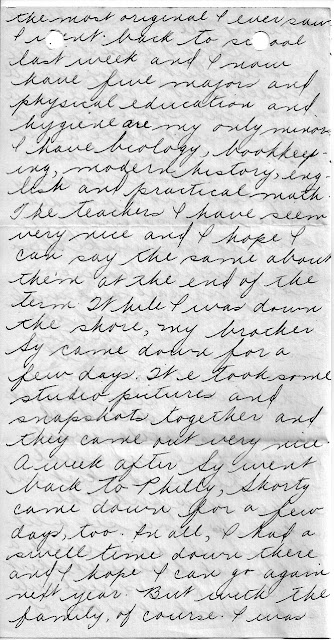 the most original I ever saw
I went back to school
last week and I now
have five majors and
physical education and
hygiene are my only minors.
I have biology, bookkeep-
ing, modern history, eng-
lish and practical math.
The teachers I have seem
very nice and I hope I
can say the same about
them at the end of the
term. While I was down
the shore, my brother
Sy came down for a
few days. We took some
studio pictures and
snapshots together and
they came out very nice.
A week after Sy went
back to Philly, Shorty
came down for a few
days, too. In all, I had a
swell time down there
and I hope I can go again
next year. But with the
family, of course. I was